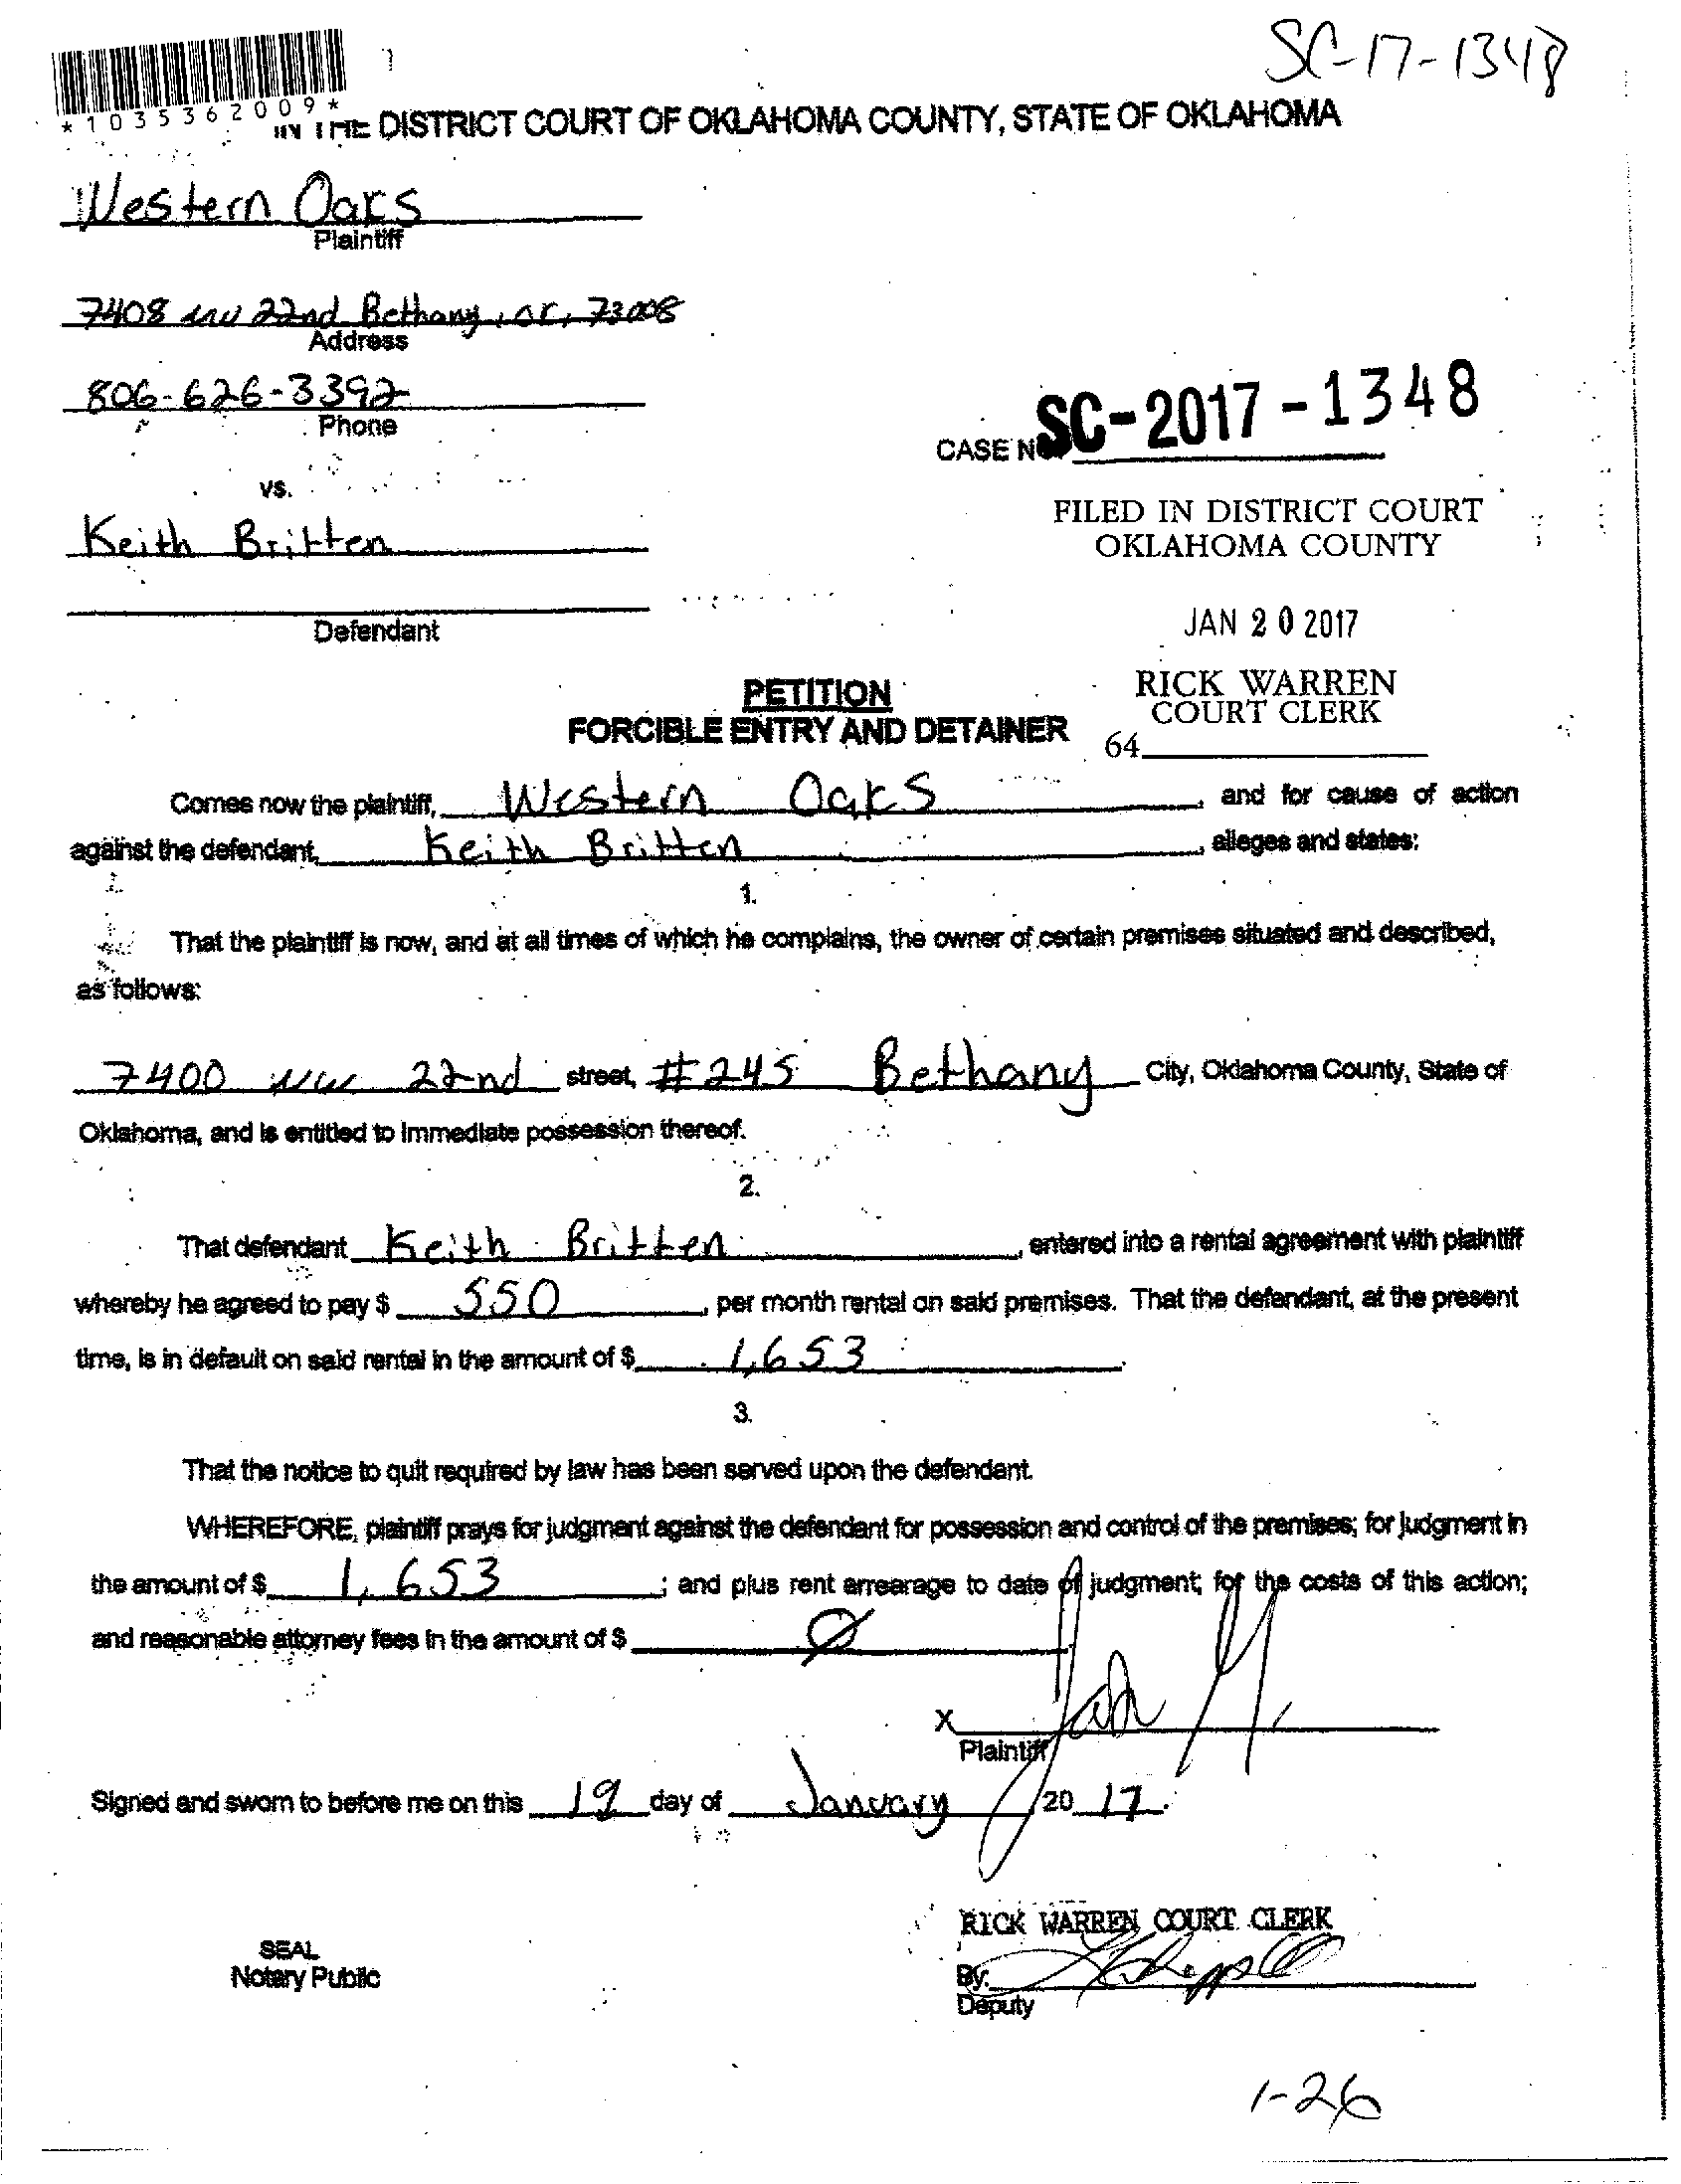 SC-17-1348
*1035362009*
IN THE DISTRICT COURT OF OKLAHOMA COUNTY, STATE OF OKLAHOMA
Western Oaks
Plaintiff
7408 NW 22nd Bethany, OK, 73008
Address
806-626-3392
Phone
CASE NO. SC-2017-1348
vs.
FILED IN DISTRICT COURT
OKLAHOMA COUNTY
Keith Britten
JAN 20 2017
Defendant
RICK WARREN
COURT CLERK
64
PETITION
FORCIBLE ENTRY AND DETAINER
Comes now the plaintiff, Western Oaks, and for cause of action
against the defendant, Keith Britten, alleges and states:
1.
That the plaintiff is now, and at all times of which he complains, the owner of certain premises situated and described,
as follows:
7400 NW 22nd street, #245 Bethany City, Oklahoma County, State of
Oklahoma, and is entitled to immediate possession thereof.
2.
That defendant Keith Britten, entered into a rental agreement with plaintiff
whereby he agreed to pay $ 550, per month rental on said premises. That the defendant, at the present
time, is in default on said rental in the amount of $ 1,653.
3.
That the notice to quit required by law has been served upon the defendant.
WHEREFORE, plaintiff prays for judgment against the defendant for possession and control of the premises; for judgment in
the amount of $ 1,653; and plus rent arrearage to date of judgment; for the costs of this action;
and reasonable attorney fees in the amount of $ Ø
X
Plaintiff
Signed and sworn to before me on this 19 day of January, 20 17.
RICK WARREN COURT CLERK
SEAL
Notary Public
By:
Deputy
1-26